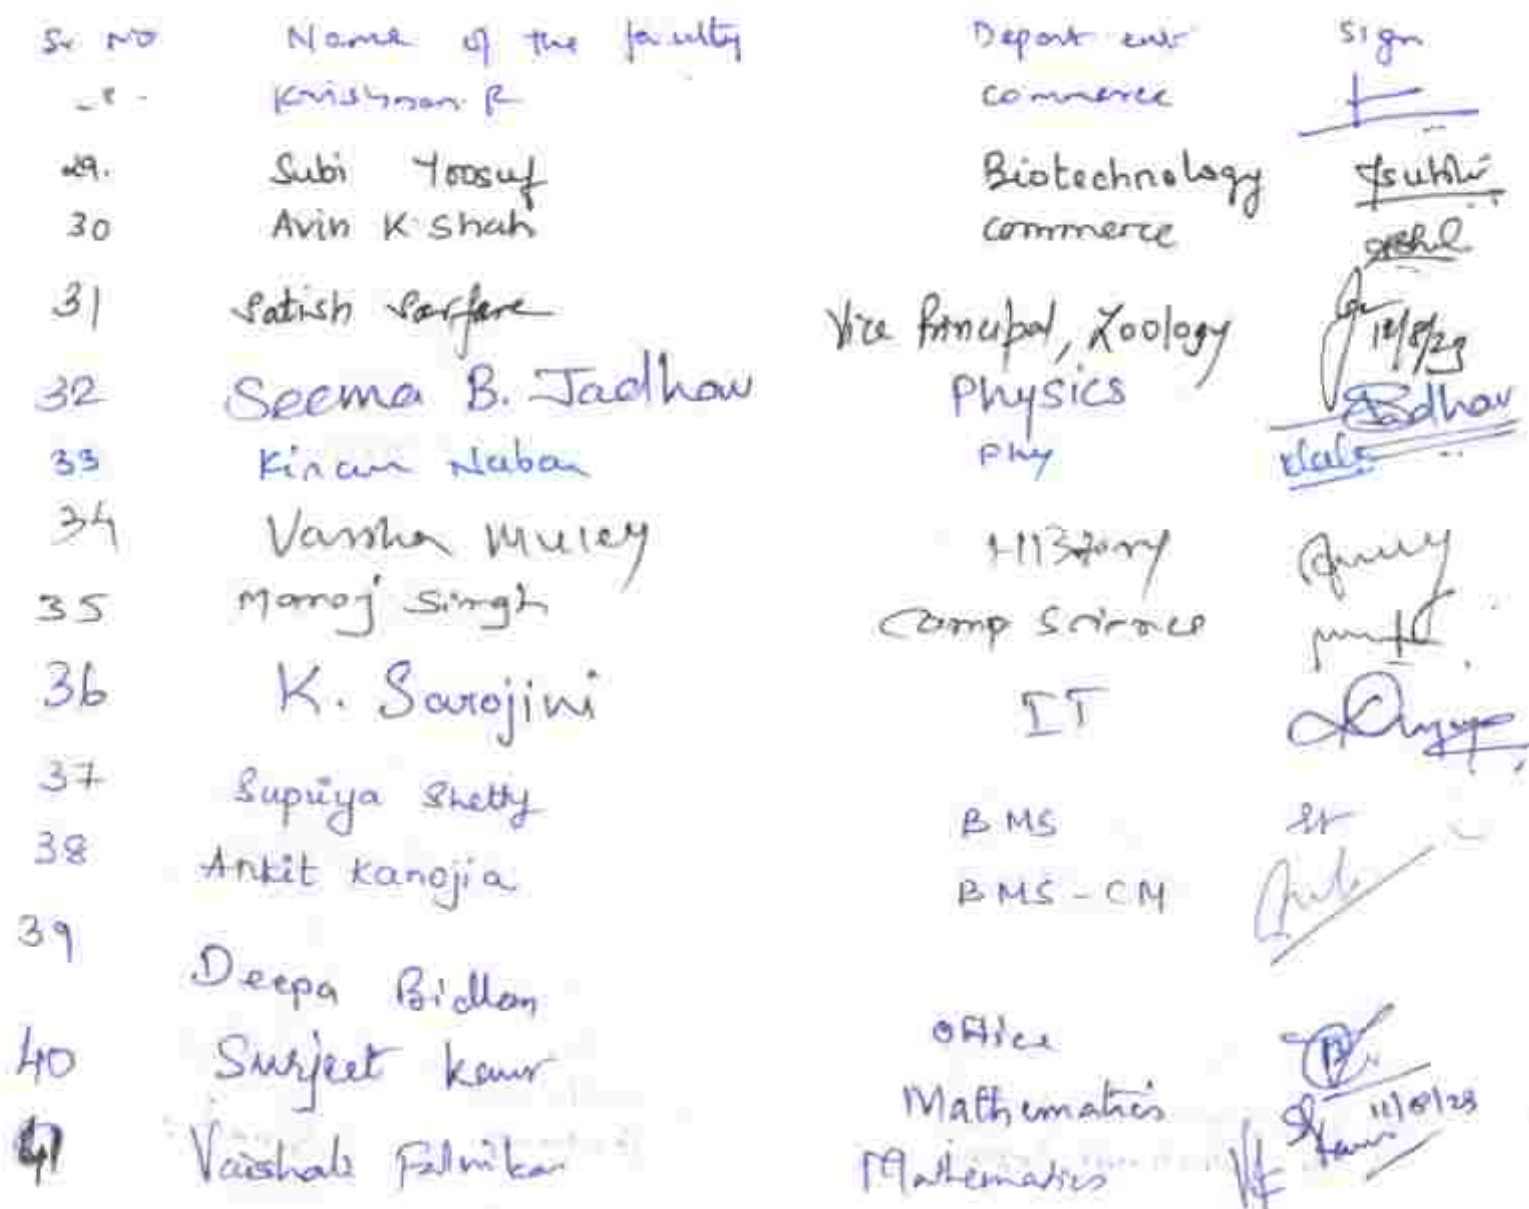 Sr No Name of the faculty Department Sign
Krishnan R commerce
29. Subi Yoosuf Biotechnology
30 Avin K Shah commerce
31 Satish Sarfare Vice Principal, Zoology 11/8/23
32 Seema B. Jadhav Physics Jadhav
33 Kiran Phy
34 Varsha Muley History
35 Manoj Singh Comp Science
36 K. Sarojini IT
37 Supriya Shetty BMS
38 Ankit Kanojia BMS - CM
39 Deepa Bidlan Office
40 Surjeet Kaur Mathematics Kaur 11/8/23
41 Vaishali Mathematics